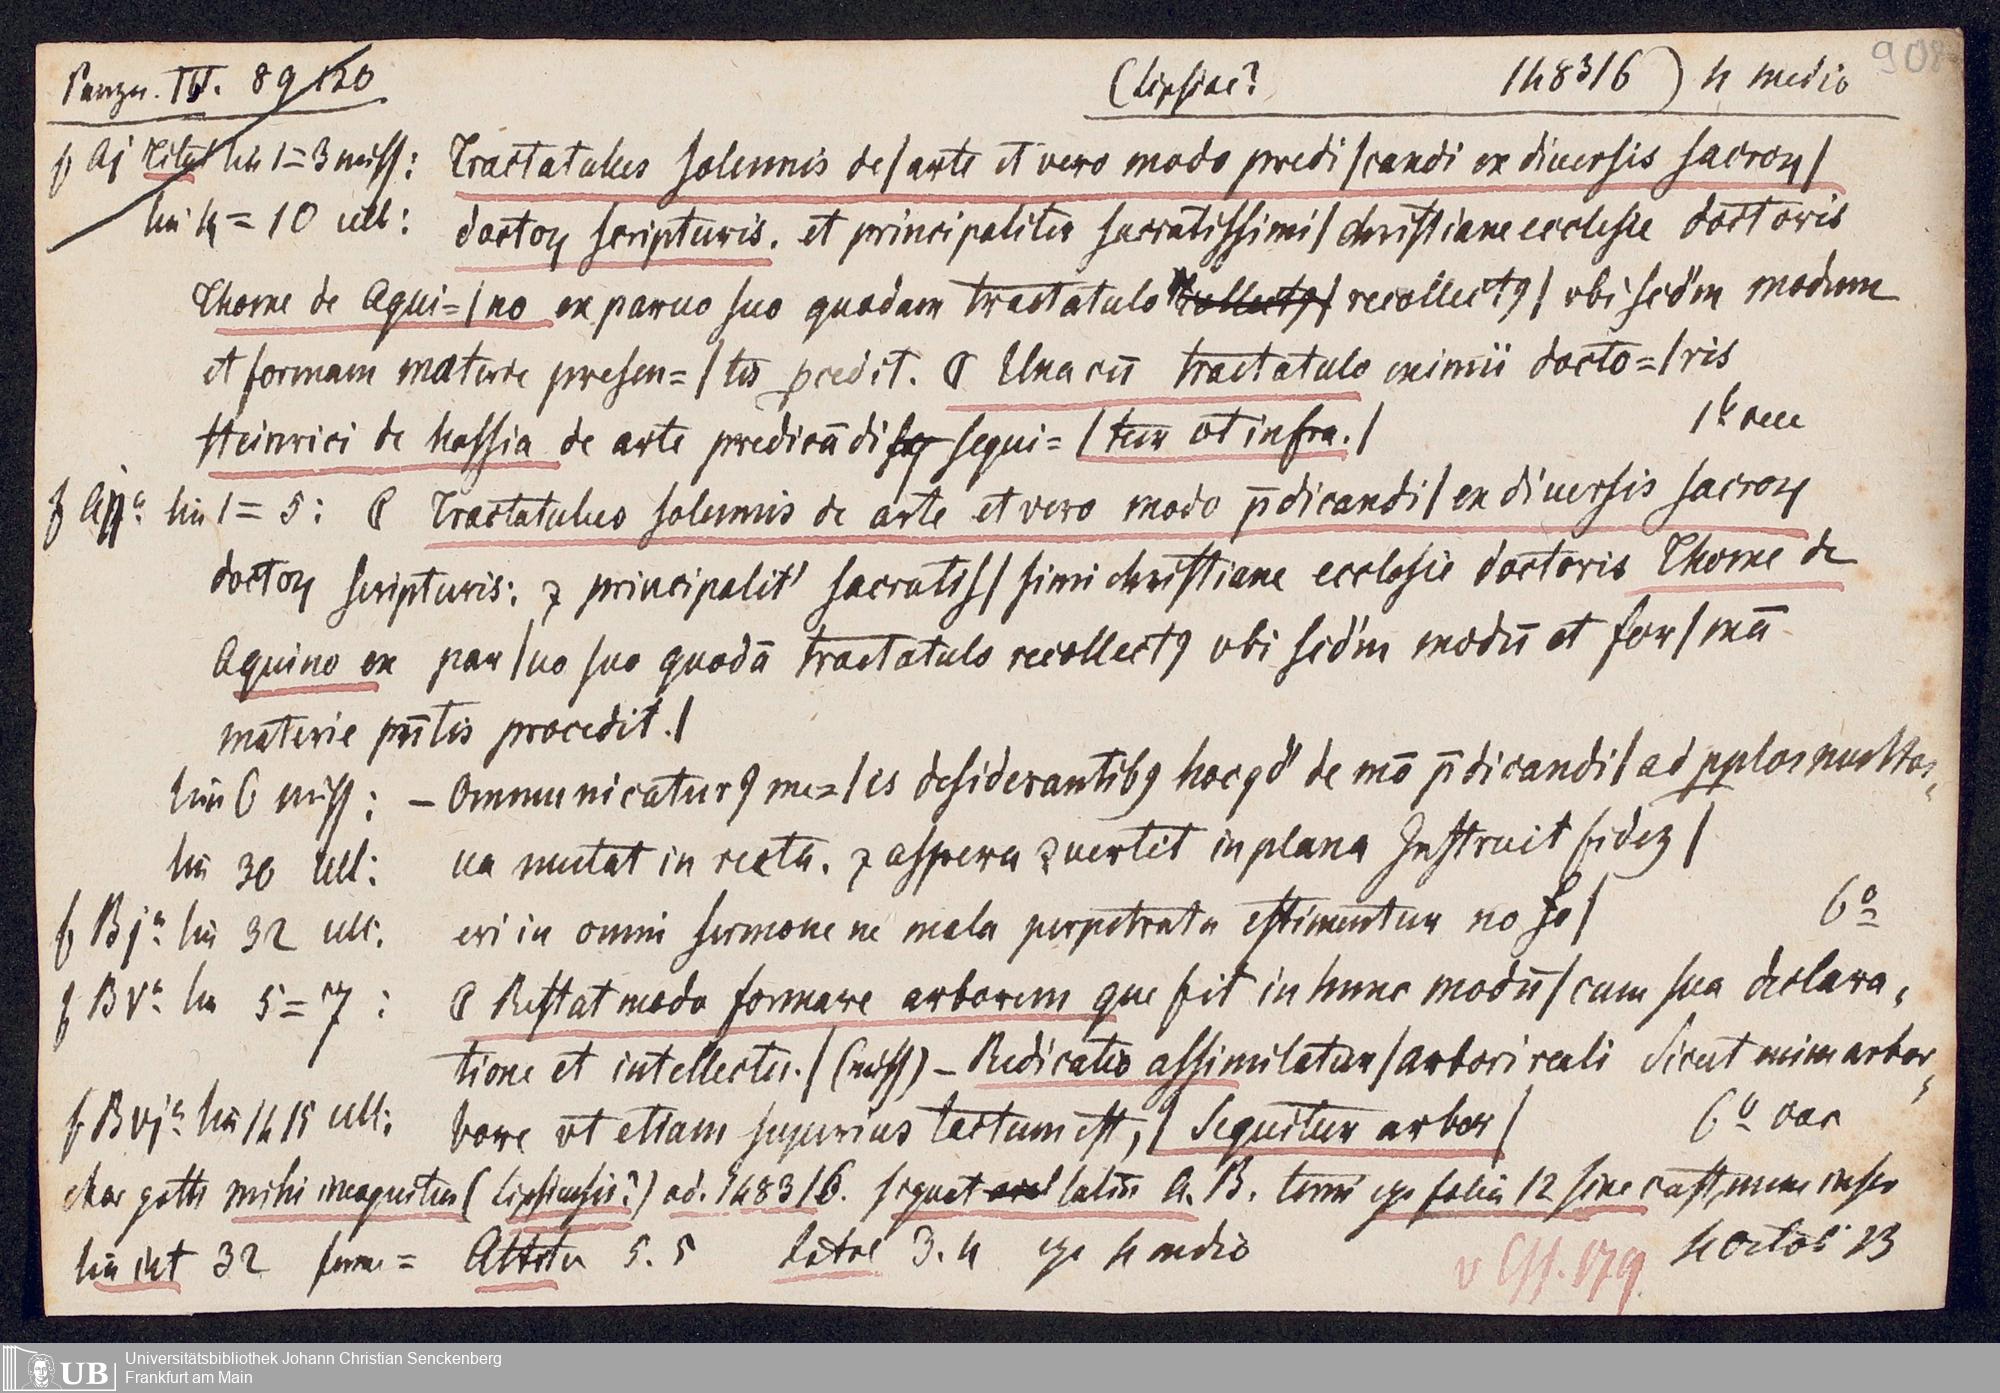 Panzer. IV. 89 120 (Lipsiae? 1483/6) 4 medio 908
f Aj Titel lin 1=3 miss: Tractatulus solennis de/arte et vero modo predi/candi ex diuersis sacroꝝ/
lin 4 = 10 ult: doctoꝝ scripturis. et principaliter sacratissimi/christiane ecclesie doctoris
Thome de Aqui=/no ex paruo suo quodam tractatulo recollectꝰ/ vbi scd'm modum
et formam materie presen=/tis . ¶ Una cū tractatulo eximii docto=/ris
Heinrici de hassia de arte predicādi sequi=/tur vt infra./
f Aijᵃ: lin 1= 5: ¶ Tractatulus solennis de arte et vero modo p̄dicandi/ ex diuersis sacroꝝ
doctoꝝ scripturis: ⁊ principalit' sacratis/simi christiane ecclesie doctoris Thome de
Aquino ex par/uo suo quodā tractatulo recollectꝰ vbi scd'm modū et for/mā
materie pn̄tis procedit./
lin 6 miss: – Ommunicaturꝰ me=/is desiderantibꝰ hoc qd' de mō p̄dicandi/ ad pplos multos,
lin 30 ult: ua mutat in recta. ⁊ aspera ꝯuertit in plana Instruit fidez/
f Bjᵃ: lin 32 ult: eri in omni sermone ne mala perpetrata estimentur no so/ 6º
f Bvᵃ: lin 5=7: ¶ Restat modo formare arborem que fit in hunc modū/cum sua declara,
tione et intellectu./(miss) – Predicatio assimilatur/arbori reali Sicut enim arbor,
f Bvjᵃ: lin 14 15 ult: bore vt etiam superius tactum est,/ Sequitur arbor/ 6º vac
char goth mihi incognitus (Lipsiensis?) ad. 1483/6. signat latin A. B. folia 12 sine cust, num
lin int 32 5. 5 3. 4 4 medio v Ess. 179. 4 Octob 23